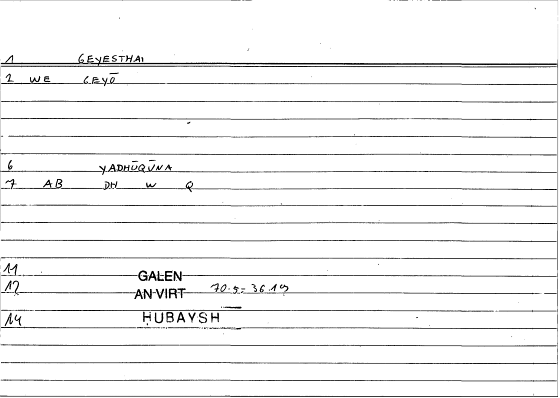 1 GEYESTHAI
2 WE GEYŌ
6 YADHŪQŪNA
7 AB DH W Q
11
12 GALEN
AN VIRT 70.5 = 36.19
14 ḤUBAYSH